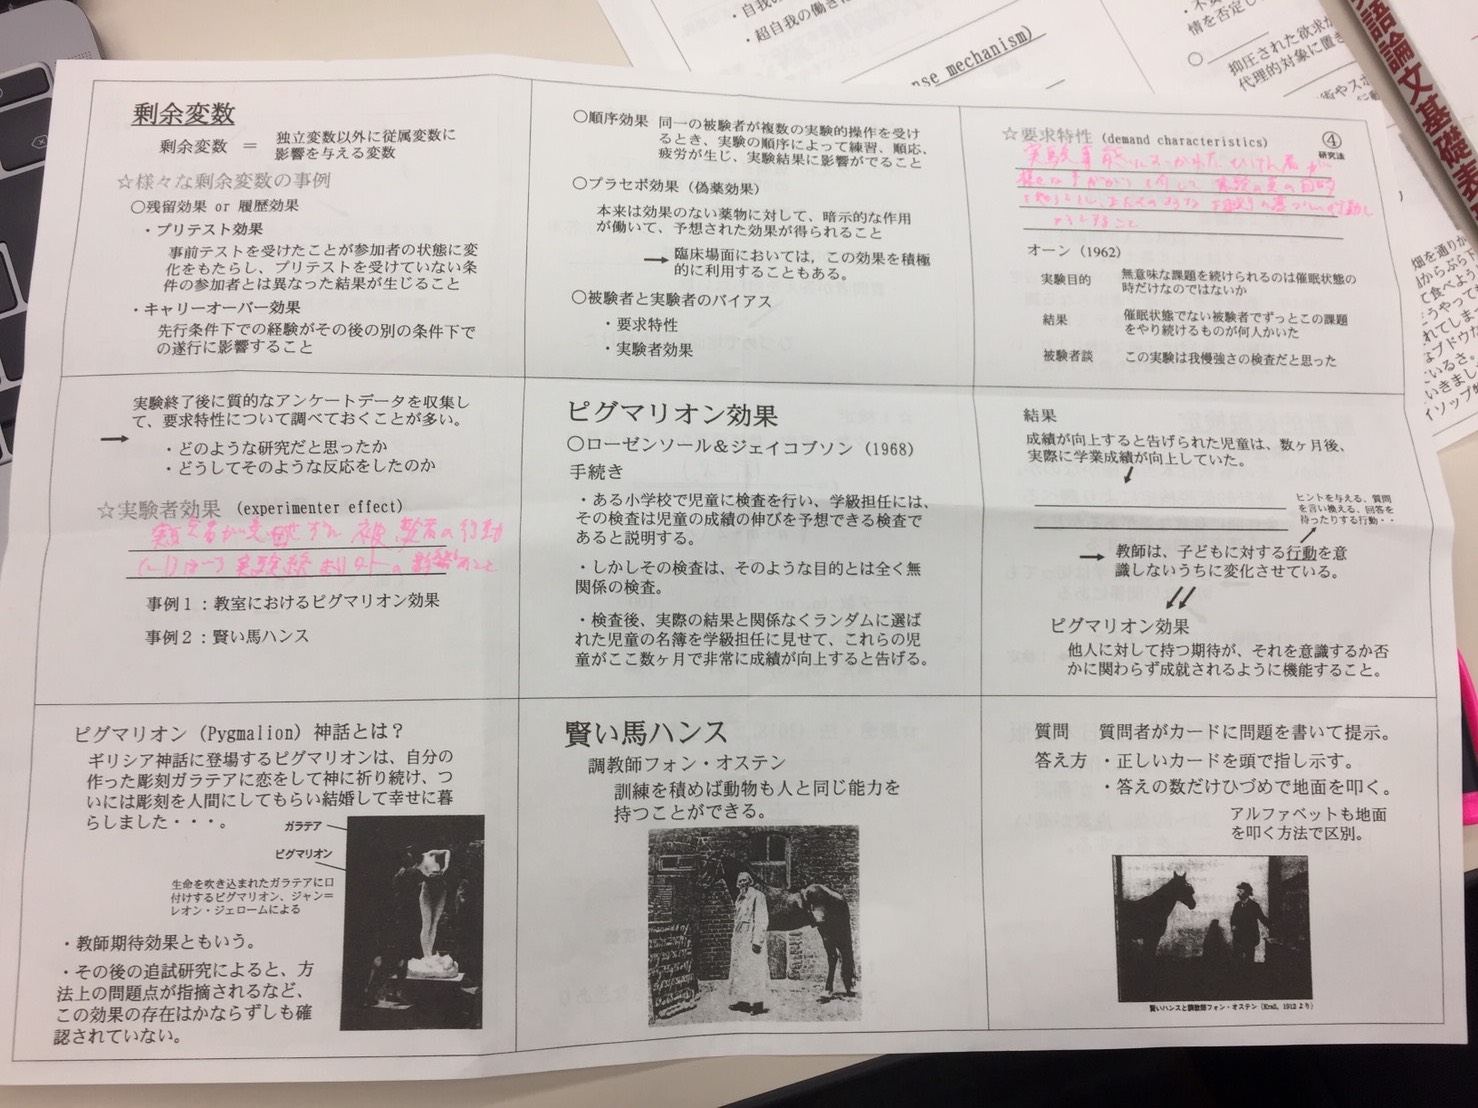 剰余変数
剰余変数 ＝ 独立変数以外に従属変数に
影響を与える変数
☆様々な剰余変数の事例
○残留効果 or 履歴効果
・プリテスト効果
事前テストを受けたことが参加者の状態に変
化をもたらし、プリテストを受けていない条
件の参加者とは異なった結果が生じること
・キャリーオーバー効果
先行条件下での経験がその後の別の条件下で
の遂行に影響すること
○順序効果 同一の被験者が複数の実験的操作を受け
るとき、実験の順序によって練習、順応、
疲労が生じ、実験結果に影響がでること
○プラセボ効果（偽薬効果）
本来は効果のない薬物に対して、暗示的な作用
が働いて、予想された効果が得られること
→ 臨床場面においては，この効果を積極
的に利用することもある。
○被験者と実験者のバイアス
・要求特性
・実験者効果
☆要求特性 (demand characteristics)
④
研究法
オーン（1962）
実験目的 無意味な課題を続けられるのは催眠状態の
時だけなのではないか
結果 催眠状態でない被験者でずっとこの課題
をやり続けるものが何人かいた
被験者談 この実験は我慢強さの検査だと思った
実験終了後に質的なアンケートデータを収集し
て、要求特性について調べておくことが多い。
→ ・どのような研究だと思ったか
・どうしてそのような反応をしたのか
☆実験者効果 (experimenter effect)
事例１：教室におけるピグマリオン効果
事例２：賢い馬ハンス
ピグマリオン効果
○ローゼンソール＆ジェイコブソン（1968）
手続き
・ある小学校で児童に検査を行い、学級担任には、
その検査は児童の成績の伸びを予想できる検査で
あると説明する。
・しかしその検査は、そのような目的とは全く無
関係の検査。
・検査後、実際の結果と関係なくランダムに選ば
れた児童の名簿を学級担任に見せて、これらの児
童がここ数ヶ月で非常に成績が向上すると告げる。
結果
成績が向上すると告げられた児童は、数ヶ月後、
実際に学業成績が向上していた。
ヒントを与える、質問
を言い換える、回答を
待ったりする行動・・
→ 教師は、子どもに対する行動を意
識しないうちに変化させている。
ピグマリオン効果
他人に対して持つ期待が、それを意識するか否
かに関わらず成就されるように機能すること。
ピグマリオン（Pygmalion）神話とは？
ギリシア神話に登場するピグマリオンは、自分の
作った彫刻ガラテアに恋をして神に祈り続け、つ
いには彫刻を人間にしてもらい結婚して幸せに暮
らしました・・・。
ガラテア
ピグマリオン
生命を吹き込まれたガラテアに口
付けするピグマリオン、ジャン＝
レオン・ジェロームによる
・教師期待効果ともいう。
・その後の追試研究によると、方
法上の問題点が指摘されるなど、
この効果の存在はかならずしも確
認されていない。
賢い馬ハンス
調教師フォン・オステン
訓練を積めば動物も人と同じ能力を
持つことができる。
質問 質問者がカードに問題を書いて提示。
答え方 ・正しいカードを頭で指し示す。
・答えの数だけひづめで地面を叩く。
アルファベットも地面
を叩く方法で区別。
賢いハンスと調教師フォン・オステン (Krall, 1912より)
・超自我の働き
nse mechanism)
情を否定し
○ 抑圧された欲求が
代理的対象に置き
語論文基礎